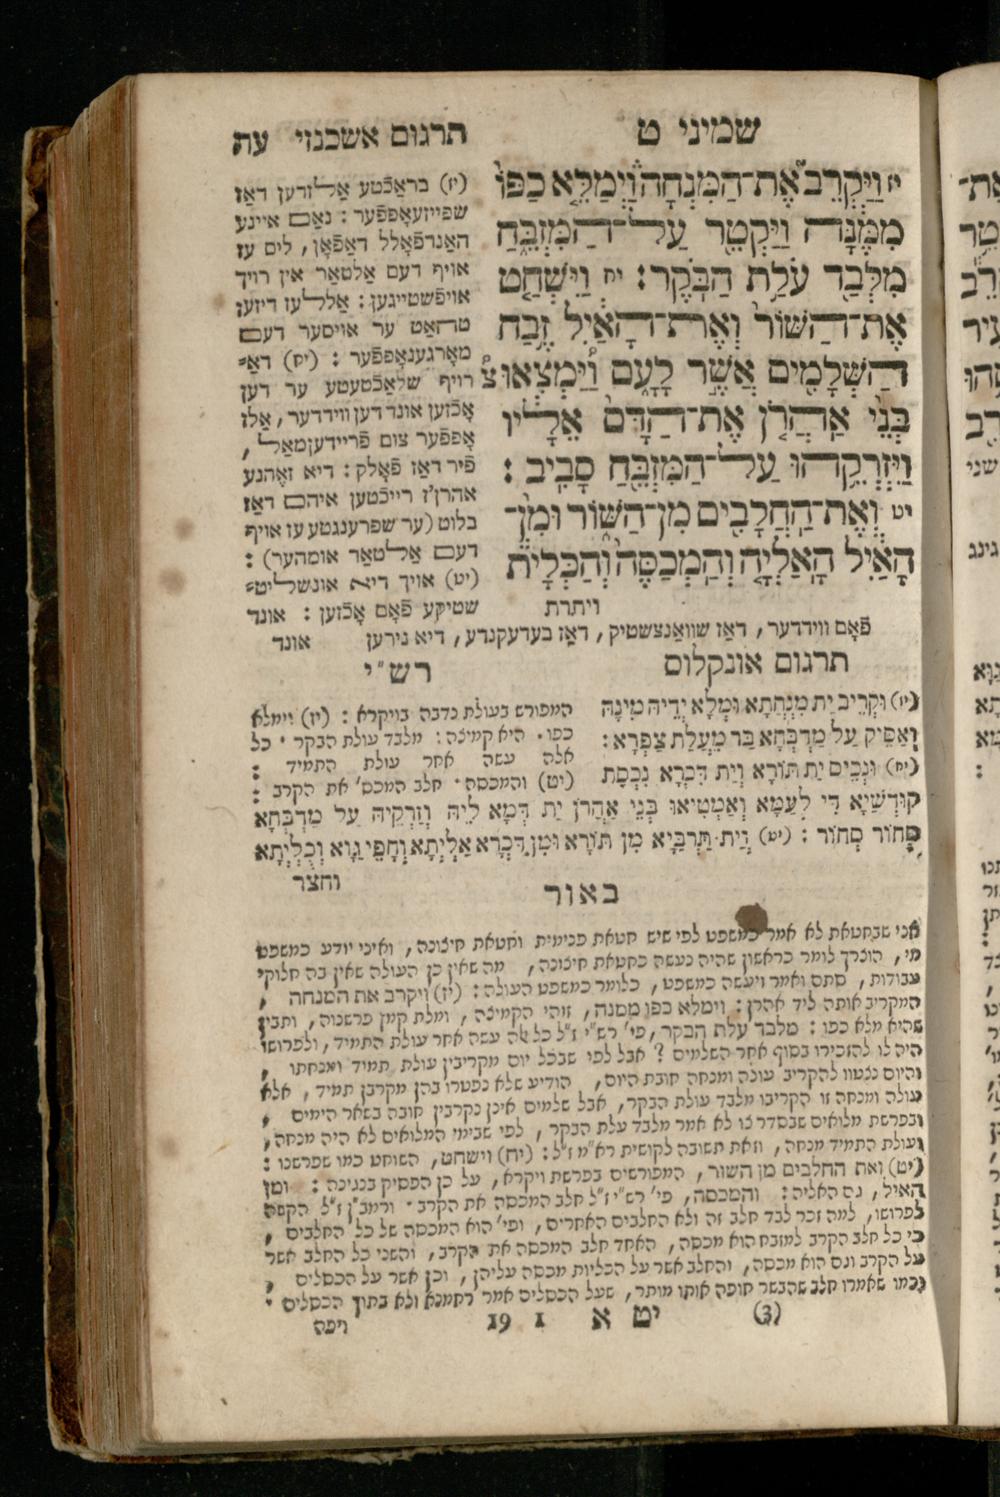 שמיני ט
תרגום אשכנזי עה
יז וַיַּקְרֵב אֶת־הַמִּנְחָה וַיְמַלֵּא כַפּוֹ
מִמֶּנָּה וַיַּקְטֵר עַל־הַמִּזְבֵּחַ
מִלְּבַד עֹלַת הַבֹּקֶר׃ יח וַיִּשְׁחַט
אֶת־הַשּׁוֹר וְאֶת־הָאַיִל זֶבַח
הַשְּׁלָמִים אֲשֶׁר לָעָם וַיַּמְצִאוּ
בְּנֵי אַהֲרֹן אֶת־הַדָּם אֵלָיו
וַיִּזְרְקֵהוּ עַל־הַמִּזְבֵּחַ סָבִיב׃
יט וְאֶת־הַחֲלָבִים מִן־הַשּׁוֹר וּמִן־
הָאַיִל הָאַלְיָה וְהַמְכַסֶּה וְהַכְּלָיֹת
ויתרת
(יז) בראַכֿטע אַללזדען דאַז
שפייזעאָפּפֿער : נאַם איינע
האַנדפֿאָלל דאַפֿאָן, ליס עז
אויף דעם אַלטאַר אין רויך
אויפֿשטייגען : אַללעז דיזעז
טהאַט ער אויסער דעם
מאָרגענאָפּפֿער : (יח) דאַ־
רויף שלאַכֿטעטע ער דען
אָכֿזען אונד דען ווידדער, אַלז
אָפּפֿער צום פֿריידענמאַל,
פֿיר דאַז פֿאָלק : דיא זאָהנע
אהרן'ז רייכֿטען איהם דאַז
בלוט (ער שפרענגטע עז אויף
דעם אַלטאַר אומהער) :
(יט) אויך דיא אונשליט־
שטיקע פֿאָם אָכֿזען : אונד
פֿאָם ווידדער, דאַז שוואַנצשטיק, דאַז בעדעקנדע, דיא נירען
אונד
תרגום אונקלוס
רש"י
(יז) וּקְרֵיב יַת מִנְחָתָא וּמְלָא יְדֵיהּ מִינָהּ
וְאַסֵּיק עַל מַדְבְּחָא בַּר מֵעֲלַת צַפְרָא :
(יח) וּנְכֵיס יַת תּוֹרָא וְיַת דִּכְרָא נִכְסַת
קוּדְשַׁיָּא דִּי לְעַמָּא וְאַמְטִיאוּ בְּנֵי אַהֲרֹן יַת דְּמָא לֵיהּ וְזַרְקֵיהּ עַל מַדְבְּחָא
סְחוֹר סְחוֹר : (יט) וְיַת תַּרְבַּיָּא מִן תּוֹרָא וּמִן דִּכְרָא אַלְיְתָא וְחָפֵי גַוָּא וְכֻלְיָתָא
וחצר
המפורש בעולת נדבה בויקרא : (יז) וימלא
כפו. היא קמיצה : מלבד עולת הבקר . כל
אלה עשה אחר עולת התמיד :
(יט) והמכסה . חלב המכס' את הקרב :
באור
אני שבחטאת לא אמר כמשפט לפי שיש חטאת פנימית וחטאת חיצונה, ואיני יודע כמשפט
מי, הוצרך לומר כראשון שהיה נעשה כחטאת חיצונה, מה שאין כן העולה שאין בה חלוקי
עבודות, סתם ואמר ויעשה כמשפט, כלומר כמשפט העולה : (יז) ויקרב את המנחה,
המקריב אותה ליד אהרן : וימלא כפו ממנה, זוהי הקמיצה, ומלת קמץ פרשנוה, ותבין
שהיא מלא כפו : מלבד עלת הבקר, פי' רש"י ז"ל כל אלה עשה אחר עולת התמיד, ולפרושו
היה לו להזכירו בסוף אחר השלמים ? אבל לפי שבכל יום מקריבין עולת תמיד ומנחתו,
והיום נצטוו להקריב עולה ומנחה חובת היום, הודיע שלא נפטרו בהן מקרבן תמיד, אלא
עולה ומנחה זו הקריבו מלבד עולת הבקר, אבל שלמים אינן נקרבין חובה בשאר הימים,
ובפרשת מלואים שבסדר צו לא אמר מלבד עלת הבקר, לפי שבימי המלואים לא היה מנחה,
ועולת התמיד מנחה, וזאת תשובה לקושית רא"מ ז"ל : (יח) וישחט, השוחט כמו שפרשנו :
(יט) ואת החלבים מן השור, המפורשים בפרשת ויקרא, על כן הפסיק בנגינה : ומן
האיל, גם האליה : והמכסה, פי' רש"י ז"ל חלב המכסה את הקרב . ורמב"ן ז"ל הקשה
לפרושו, למה זכר לבד חלב זה ולא החלבים האחרים, ופי' הוא המכסה של כל החלבים,
כי כל חלב הקרב למזבח הוא מכסה, האחד חלב המכסה את הקרב, והשני כל החלב אשר
על הקרב וגם הוא מכסה, והחלב אשר על הכליות מכסה עליהן, וכן אשר על הכסלים,
וכמו שאמרו חלב שהבשר חופה אותו מותר, שעל הכסלים אמר רחמנא ולא בתוך הכסלים .
(3) יט א 1 19
ויפה